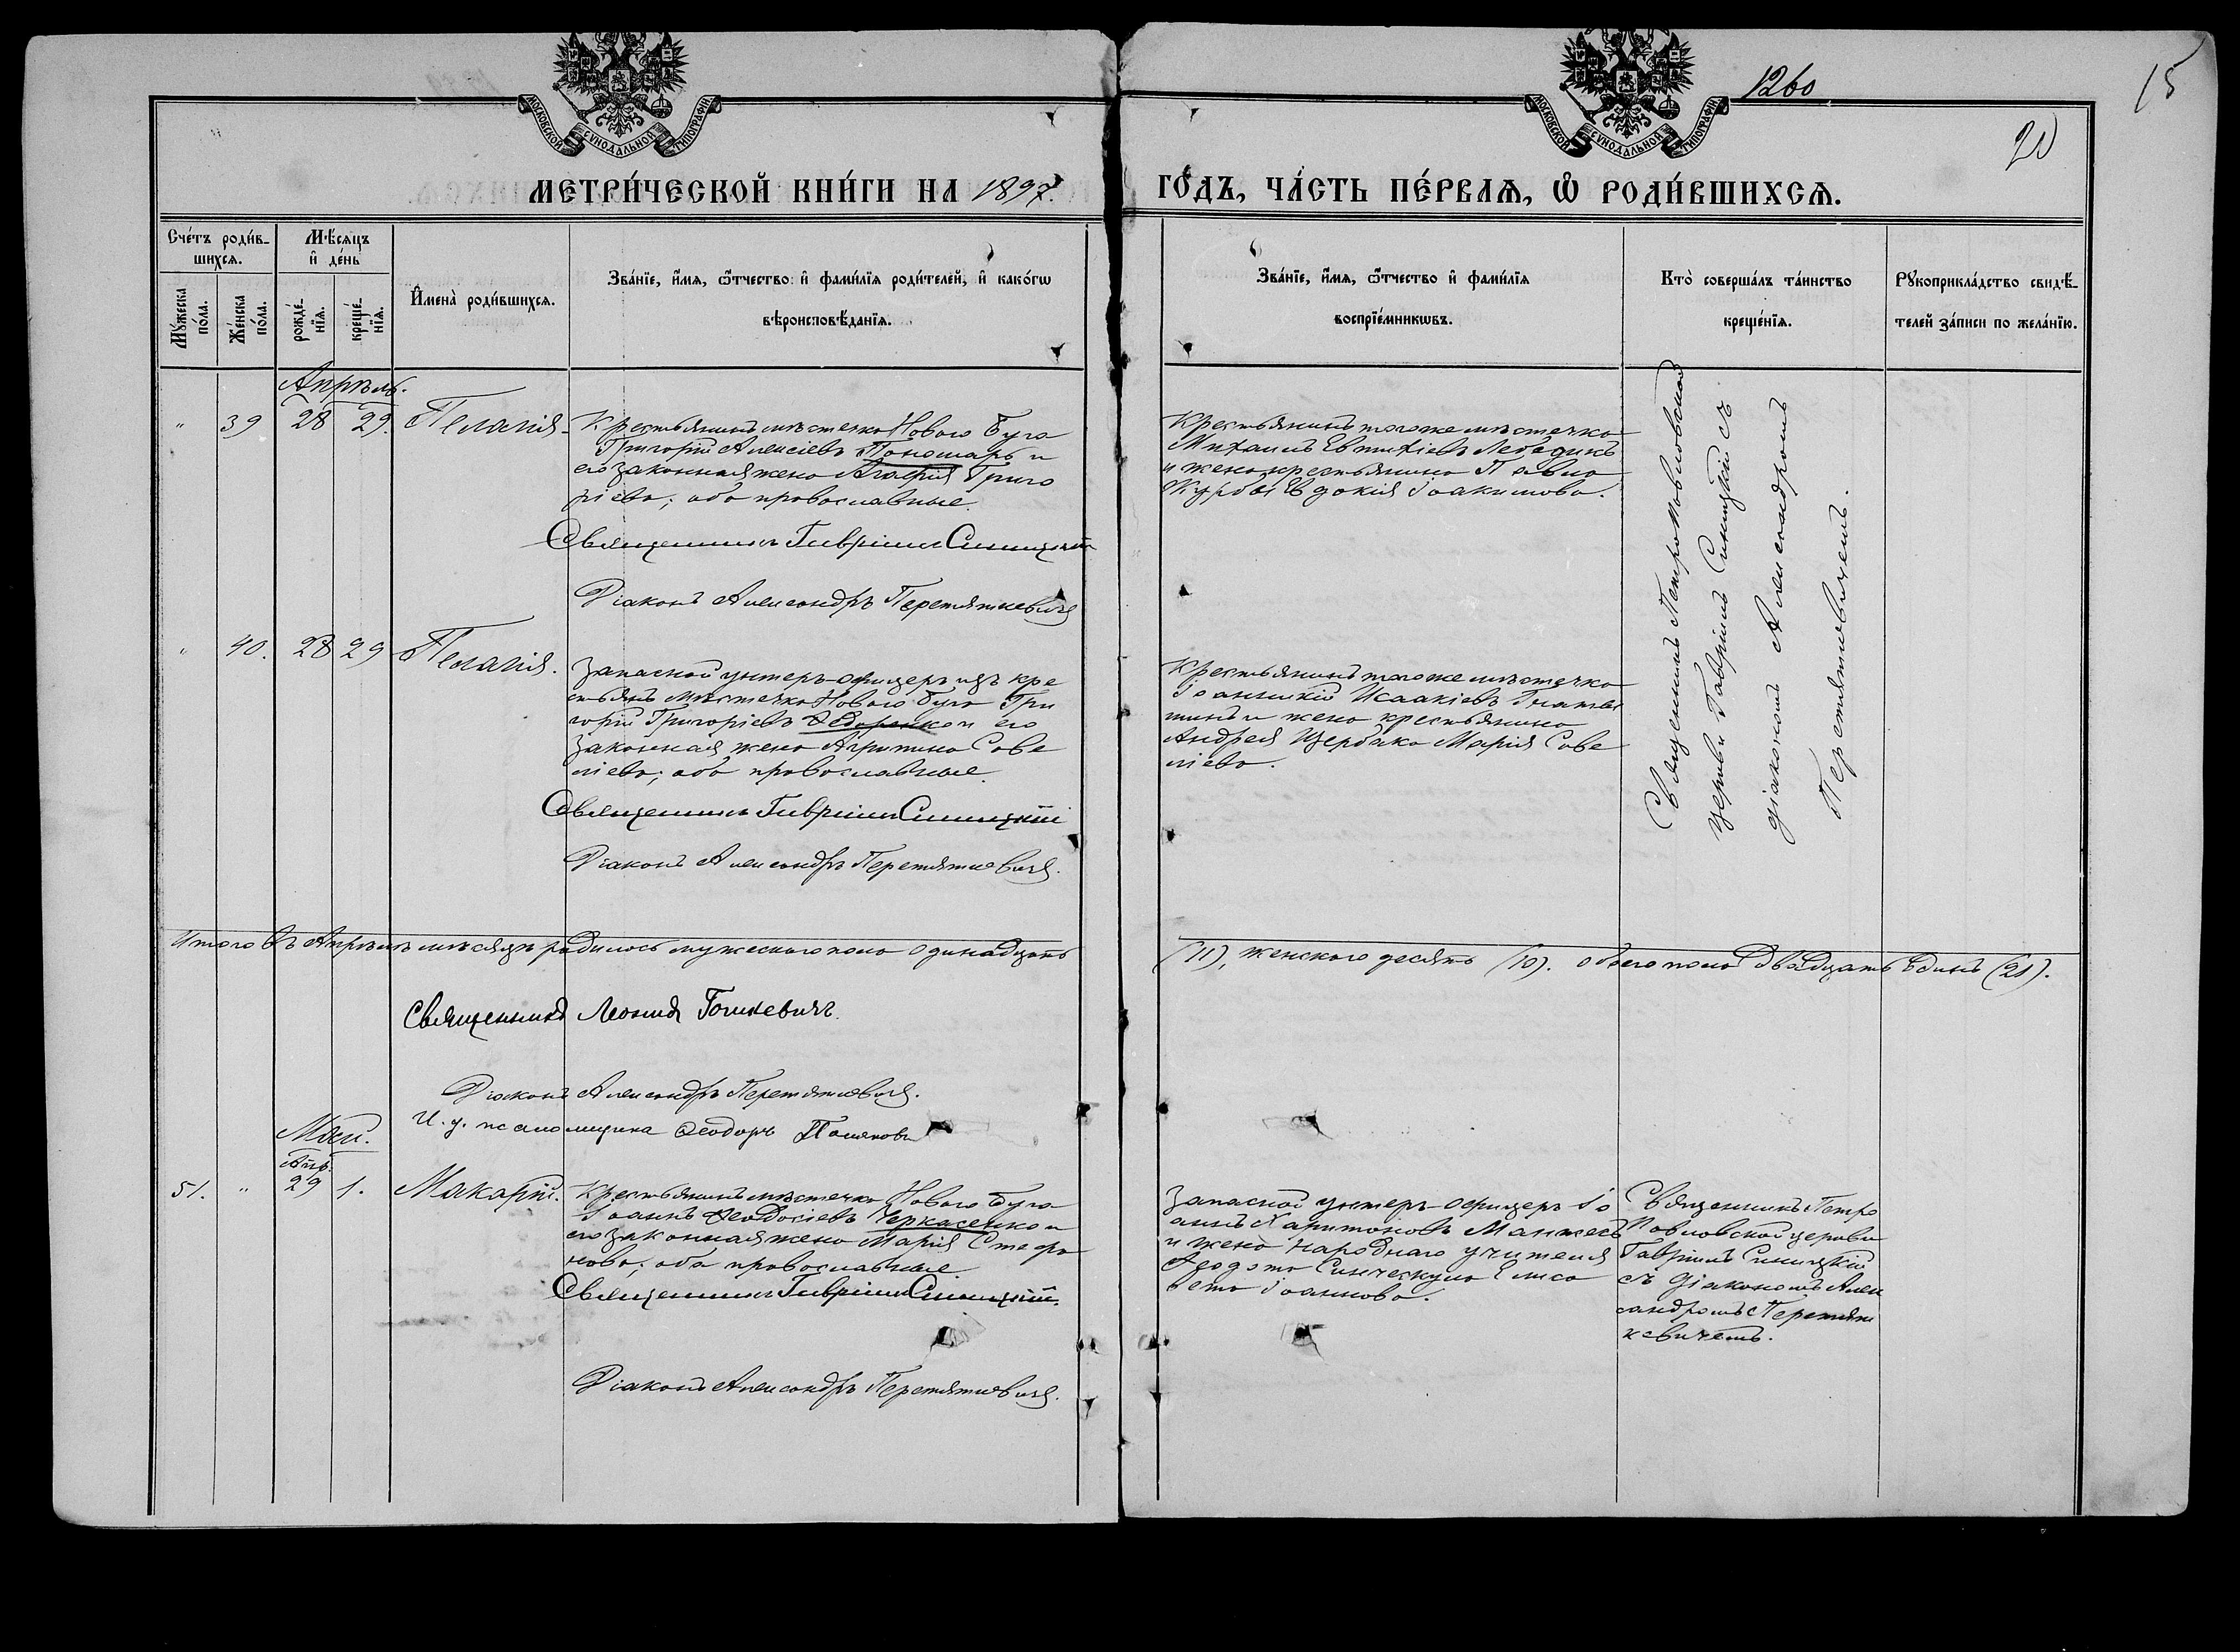 1260
15
20
МОСКОВСКОЙ СУНОДАЛЬНОЙ ТИПОГРАФІИ
МОСКОВСКОЙ СУНОДАЛЬНОЙ ТИПОГРАФІИ
МЕТРИ́ЧЕСКОЙ КНИ́ГИ НА 1897.
ГО́ДЪ, ЧА́СТЬ ПЕ́РВАѦ, Ѡ РОДИ́ВШИХСѦ.
Сче́тъ роди́в-
шихсѧ.
Мѣ́сѧцъ
и҆ де́нь
Му́жеска
по́ла.
Же́нска
по́ла.
рожде́-
нїѧ.
креще́-
нїѧ.
И҆мена̀ роди́вшихсѧ.
Зва́нїе, и҆́мѧ, ѻ҆́тчество и҆ фами́лїѧ роди́телей, и҆ како́гѡ
вѣроисповѣ́данїѧ.
Зва́нїе, и҆́мѧ, ѻ҆́тчество и҆ фами́лїѧ
воспрїе́мникѡвъ.
Кто̀ соверша́лъ та́инство
креще́нїѧ.
Рꙋкоприкла́дство свидѣ́-
телей за́писи по жела́нїю.
Апрѣль.
" 39 28 29. Пелагія.
Крестьянинъ мѣстечка Новаго Буга
Григорій Алексіевъ Пономарь и
его законная жена Агафія Григо
ріева; оба православные.
Священникъ Гавріилъ Синицкій
Діаконъ Александръ Перетяткевичъ
Крестьянинъ тогоже мѣстечка
Михаилъ Евтихіевъ Лебединъ
и жена крестьянина Павла
Журбы Евдокія Іоакимова.
Священникъ Петропавловской
церкви Гавріилъ Синицкій съ
діакономъ Александромъ
Перетяткевичемъ.
" 40. 28 29 Пелагія.
Запасной унтеръ-офицеръ изъ кре
стьянъ мѣстечка Новаго Буга Гри
горій Григоріевъ Ѳедоренко и его
законная жена Агрипина Саве
ліева; оба православные.
Священникъ Гавріилъ Синицкій
Діаконъ Александръ Перетяткевичъ.
Крестьянинъ тогоже мѣстечка
Іоанникій Исаакіевъ
и жена крестьянина
Андрея Щербака Марія Саве
ліева.
Итого въ Апрѣлѣ мѣсяцѣ родилось мужескаго пола одинадцать
(11), женскаго десять (10). обоего пола двадцать одинъ (21).
Священникъ Леонид Гошкевичъ.
Діаконъ Александръ Перетяткевичъ.
И. д. псаломщика Ѳеодоръ Поляковъ
Май.
Апр.
51. " 29 1. Макарій.
Крестьянинъ мѣстечка Новаго Буга
Іоаннъ Ѳеодосіевъ Черкасенко и
его законная жена Марія Стефа
нова; оба православные.
Священникъ Гавріилъ Синицкій.
Діаконъ Александръ Перетяткевичъ.
Запасной унтеръ-офицеръ Іо
аннъ Харитоновъ
и жена народнаго учителя
Ѳеодота Елиса
вета Іоаннова.
Священникъ Петро
Павловской церкви
Гавріилъ Синицкій
съ діакономъ Алек
сандромъ Перетят
кевичемъ.